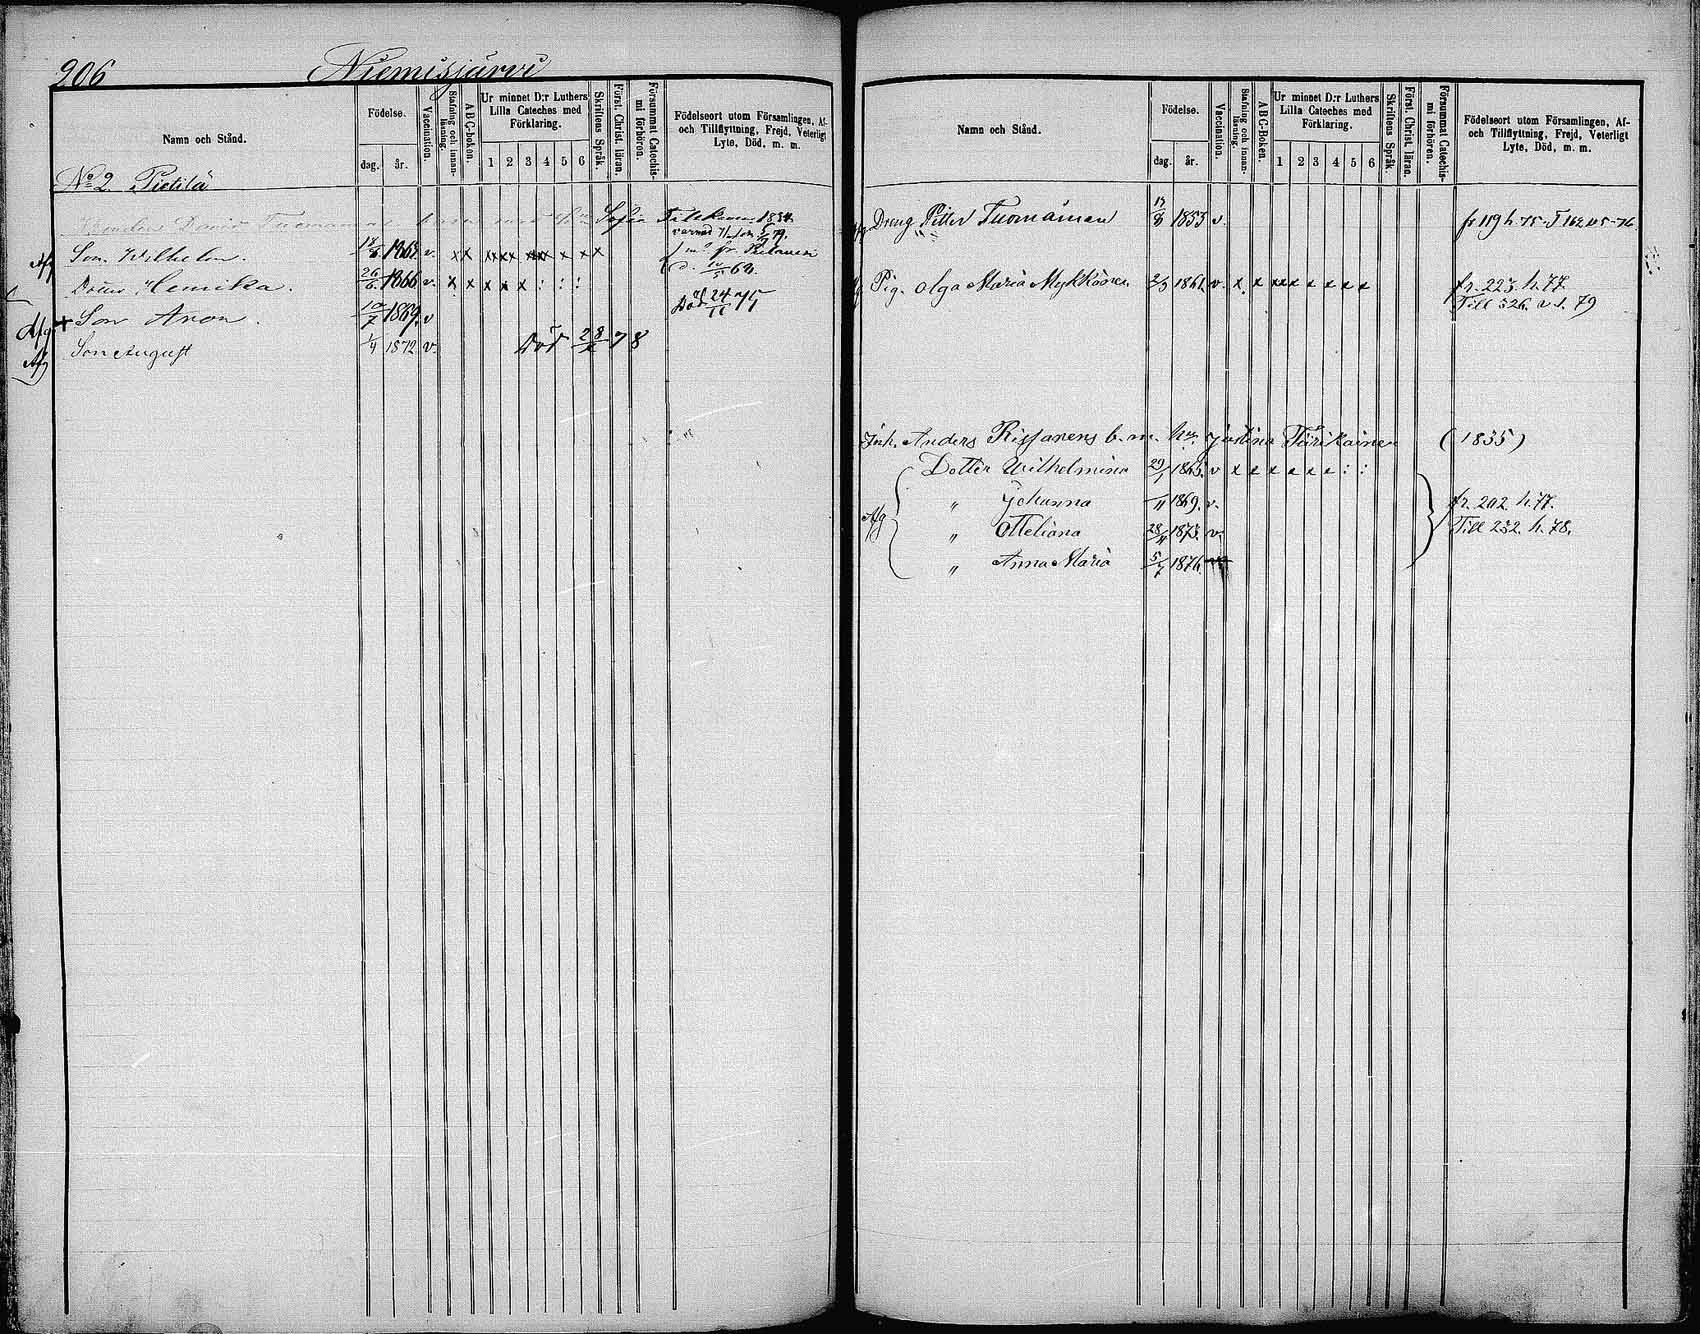 206 Niemisjärvi
Namn och Stånd.
Födelse.
dag. år.
Vaccination.
Stafning och innanläsning.
ABC-Boken.
Ur minnet D:r Luthers
Lilla Cateches med
Förklaring.
1 2 3 4 5 6
Skriftens Språk.
Först. Christ. läran.
Försummat Catechismi förhören.
Födelseort utom Församlingen, Af-
och Tillflyttning, Frejd, Veterligt
Lyte, Död, m. m.
No 2 Pietilä
Bonden David Sofia 1834
Son. Wilhelm. 1863. v. x x x x x x x x x x fr.
Dotter Hemika. 26/6 1866 v. x x x x x : : :
Afg + Son Aron. 10/7 1869. v Död 24/11 75
Afg Son August 1/4 1872 v. Död 28/2 78
Namn och Stånd.
Födelse.
dag. år.
Vaccination.
Stafning och innanläsning.
ABC-Boken.
Ur minnet D:r Luthers
Lilla Cateches med
Förklaring.
1 2 3 4 5 6
Skriftens Språk.
Först. Christ. läran.
Försummat Catechismi förhören.
Födelseort utom Församlingen, Af-
och Tillflyttning, Frejd, Veterligt
Lyte, Död, m. m.
Dreng Petter Tuomainen 1853 v. fr 119 h. 75
Pig. Olga Maria Mykkänen 1861. v. x x x x x x x x x x fr. 223. h. 77.
Till 326. v. 1. 79
Inh. Anders Rissanens b. m. Justina (1835)
Dotter Wilhelmina 29/1 1865. v x x x x x x x : :
" Johanna 1869. v. fr. 202. h. 77.
Afg " Otteliana 28/11 1873. v. Till 232. h. 78.
" Anna Maria 5/7 1876.